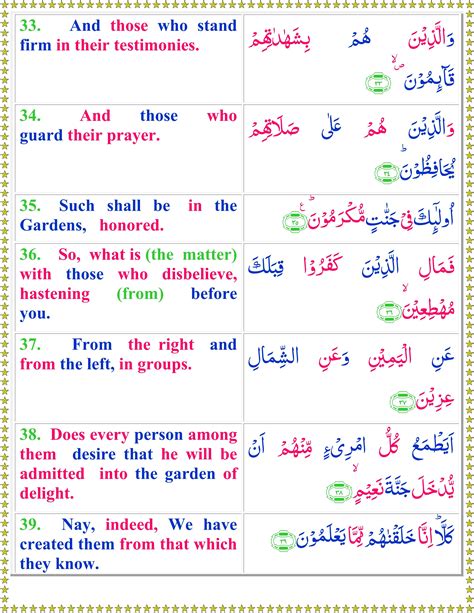 33. And those who stand
firm in their testimonies.
وَالَّذِيْنَ هُمْ بِشَهٰدٰتِهِمْ
قَآىِٕمُوْنَ ۪ۙ ۳۳
34. And those who
guard their prayer.
وَالَّذِيْنَ هُمْ عَلٰى صَلَاتِهِمْ
يُحَافِظُوْنَ ۳٤
35. Such shall be in the
Gardens, honored.
اُولٰٓىِٕكَ فِيْ جَنّٰتٍ مُّكْرَمُوْنَ ۳٥
36. So, what is (the matter)
with those who disbelieve,
hastening (from) before
you.
فَمَالِ الَّذِيْنَ كَفَرُوْا قِبَلَكَ
مُهْطِعِيْنَ ۙ ۳٦
37. From the right and
from the left, in groups.
عَنِ الْيَمِيْنِ وَعَنِ الشِّمَالِ
عِزِيْنَ ۳۷
38. Does every person among
them desire that he will be
admitted into the garden of
delight.
اَيَطْمَعُ كُلُّ امْرِئٍ مِّنْهُمْ اَنْ
يُّدْخَلَ جَنَّةَ نَعِيْمٍ ۙ ۳۸
39. Nay, indeed, We have
created them from that which
they know.
كَلَّا ؕ اِنَّا خَلَقْنٰهُمْ مِّمَّا يَعْلَمُوْنَ ۳۹